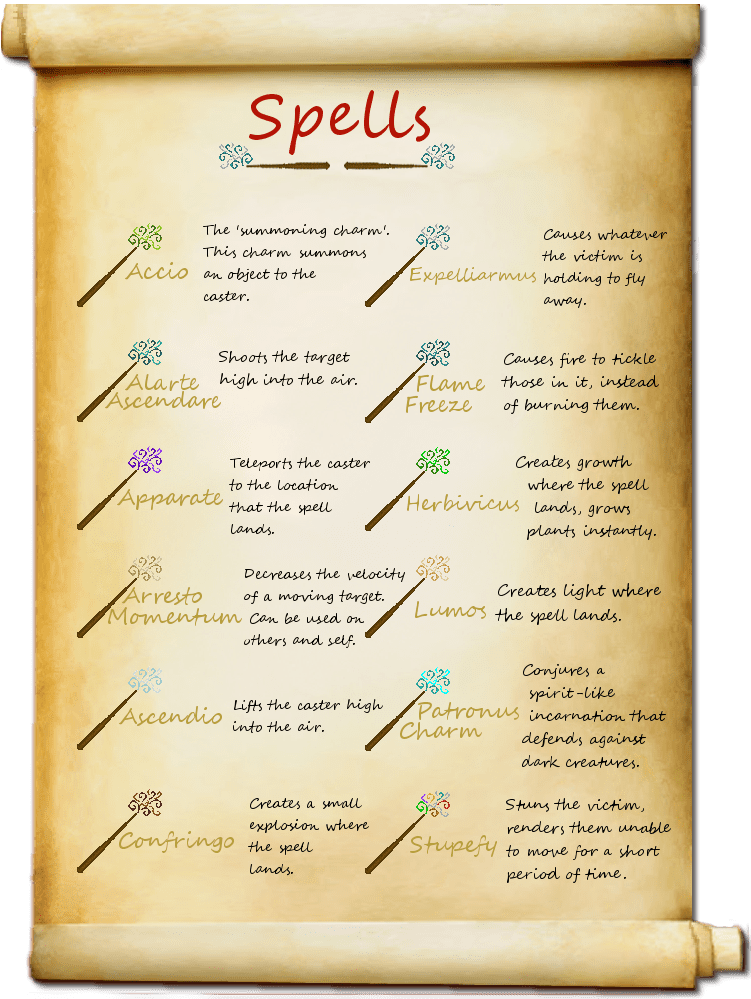 Spells
Accio
The 'summoning charm'.
This charm summons
an object to the
caster.
Expelliarmus
Causes whatever
the victim is
holding to fly
away.
Alarte
Ascendare
Shoots the target
high into the air.
Flame
Freeze
Causes fire to tickle
those in it, instead
of burning them.
Apparate
Teleports the caster
to the location
that the spell
lands.
Herbivicus
Creates growth
where the spell
lands, grows
plants instantly.
Arresto
Momentum
Decreases the velocity
of a moving target.
Can be used on
others and self.
Lumos
Creates light where
the spell lands.
Ascendio
Lifts the caster high
into the air.
Patronus
Charm
Conjures a
spirit-like
incarnation that
defends against
dark creatures.
Confringo
Creates a small
explosion where
the spell
lands.
Stupefy
Stuns the victim,
renders them unable
to move for a short
period of time.